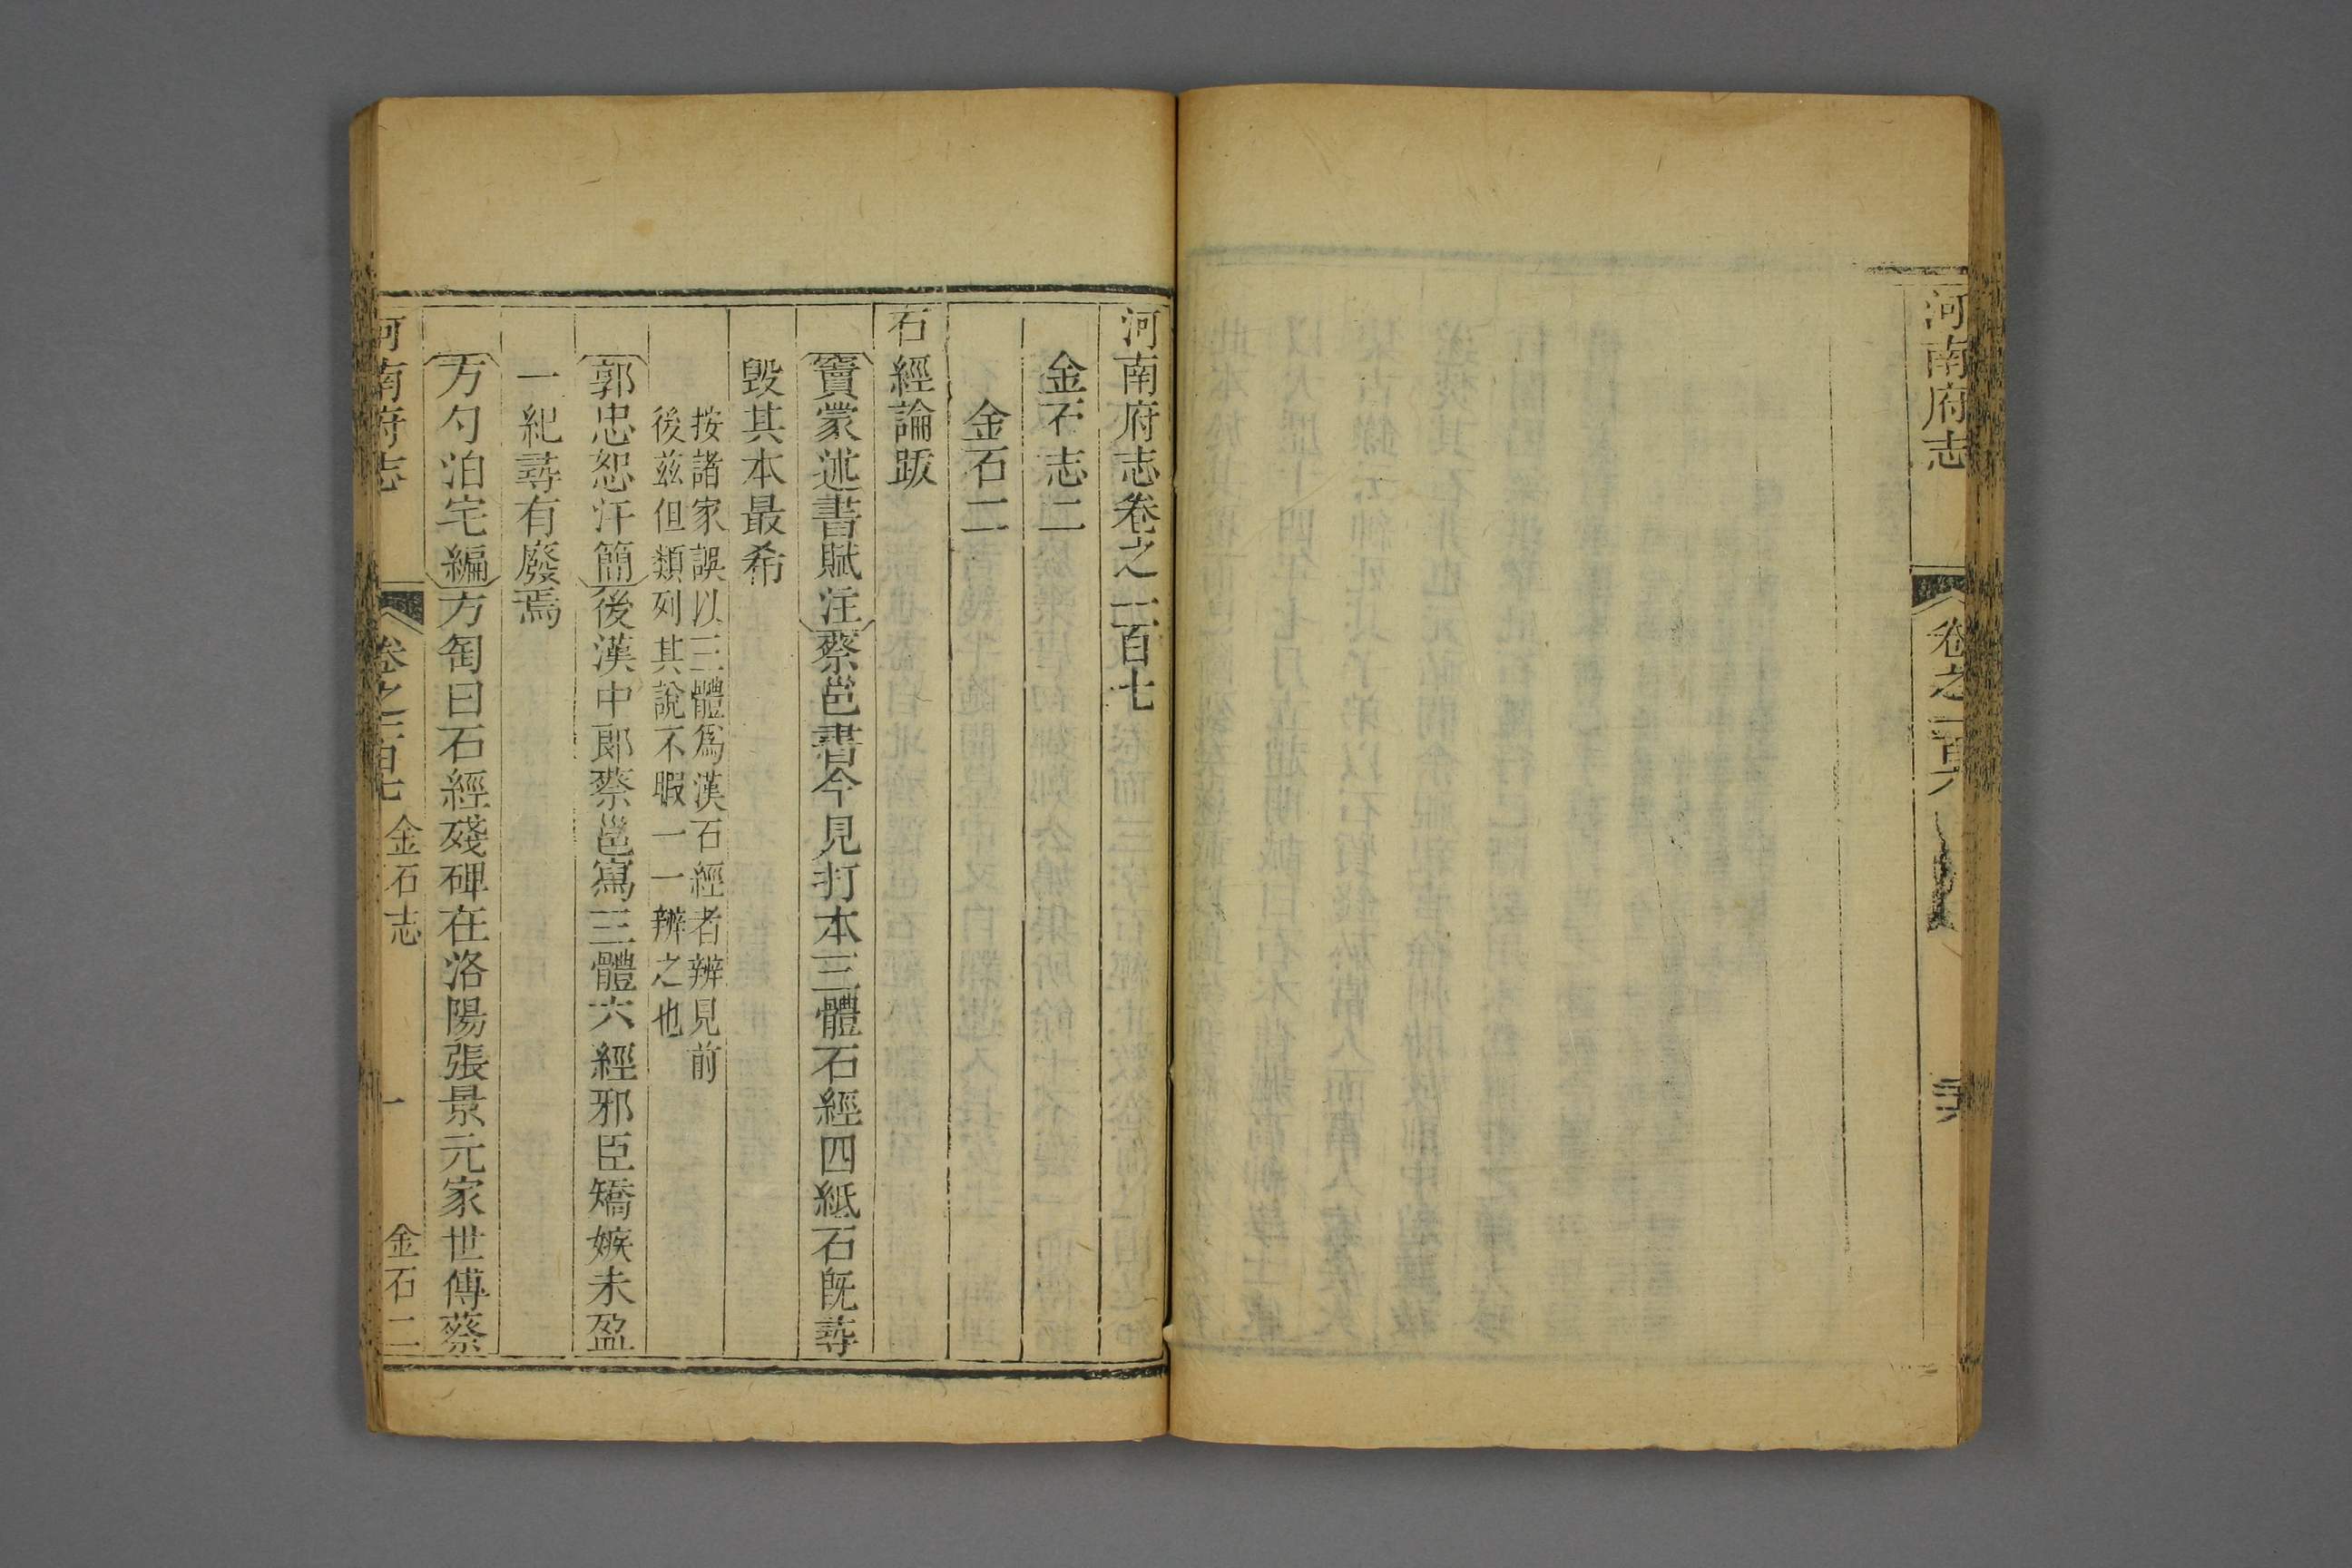 河南府志
卷之一百六
河南府志卷之一百七
金石志二
金石二
石經論跋
竇蒙述書賦注蔡邕書今見打本三體石經四紙石旣尋
毀其本最希
按諸家誤以三體爲漢石經者辨見前
後茲但類列其說不暇一一辨之也
郭忠恕汗簡後漢中郎蔡邕寫三體六經邪臣矯嫉未盈
一紀尋有廢焉
方勺泊宅編方匋曰石經殘碑在洛陽張景元家世傳蔡
河南府志
卷之一百七
金石志
一
金石二